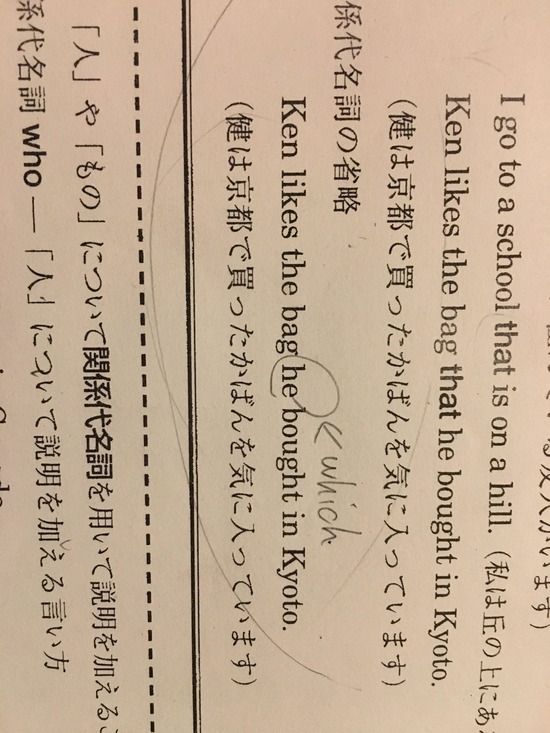 I go to a school that is on a hill. (私は丘の上にあ
Ken likes the bag that he bought in Kyoto.
(健は京都で買ったかばんを気に入っています)
係代名詞の省略
<which
Ken likes the bag he bought in Kyoto.
(健は京都で買ったかばんを気に入っています)
「人」や「もの」について関係代名詞を用いて説明を加える
係代名詞 who ―「人」について説明を加える言い方